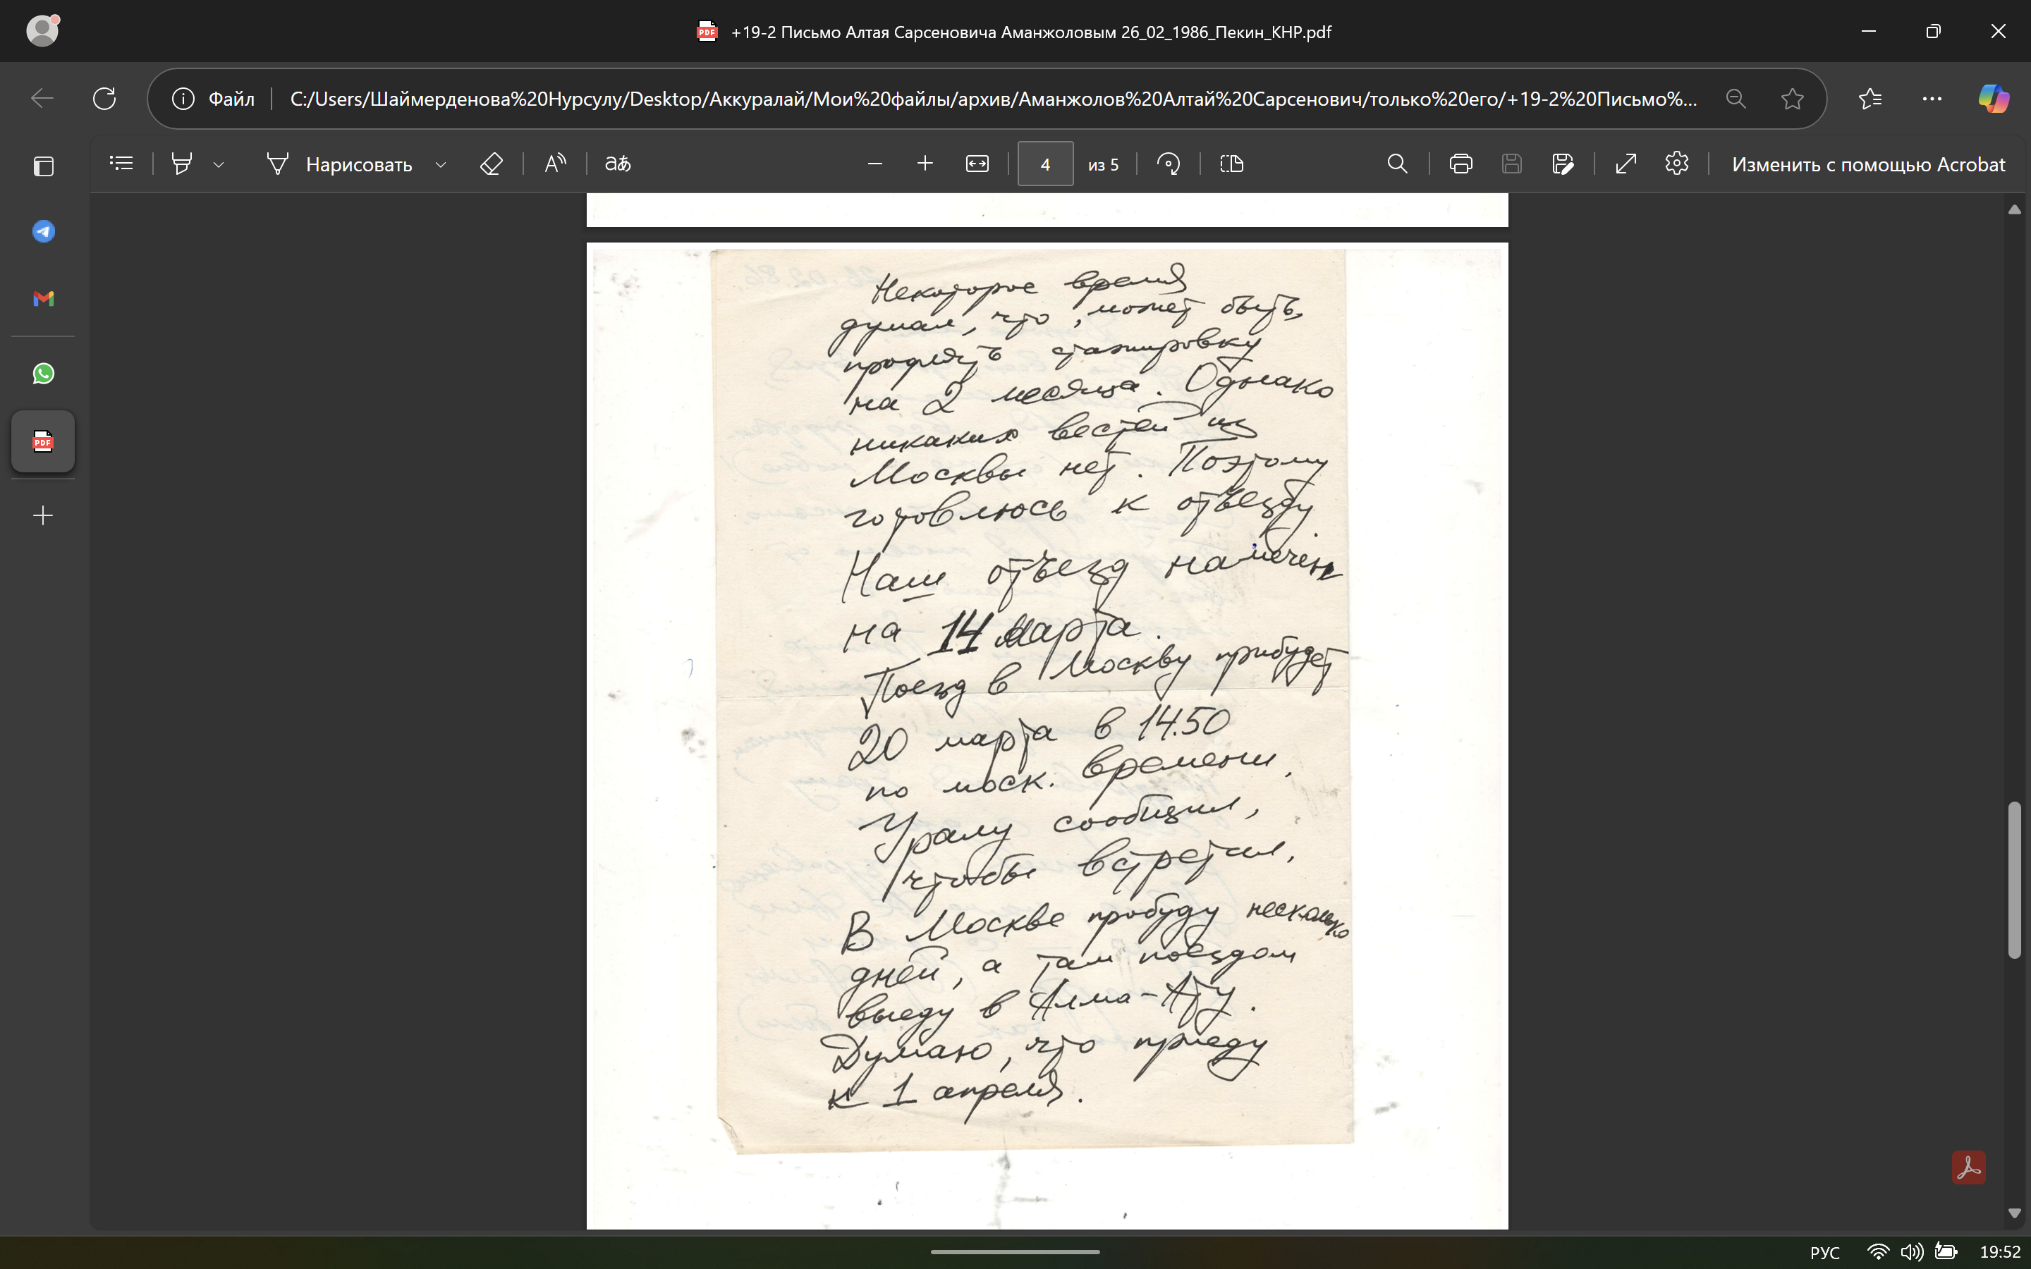 +19-2 Письмо Алтая Сарсеновича Аманжоловым 26_02_1986_Пекин_КНР.pdf
Файл
C:/Users/Шаймерденова%20Нурсулу/Desktop/Аккуралай/Мои%20файлы/архив/Аманжолов%20Алтай%20Сарсенович/только%20его/+19-2%20Письмо%...
Нарисовать
4 из 5
Изменить с помощью Acrobat
Некоторое время
думал, что, может быть,
продлять стажировку
на 2 месяца. Однако
никаких вестей из
Москвы нет. Поэтому
готовлюсь к отъезду.
Наш отъезд намечен
на 14 марта.
Поезд в Москву прибудет
20 марта в 14.50
по моск. времени.
Уралу сообщил,
чтобы встретил.
В Москве пробуду несколько
дней, а там поездом
выеду в Алма-Ату.
Думаю, что приеду
к 1 апреля.
РУС
19:52